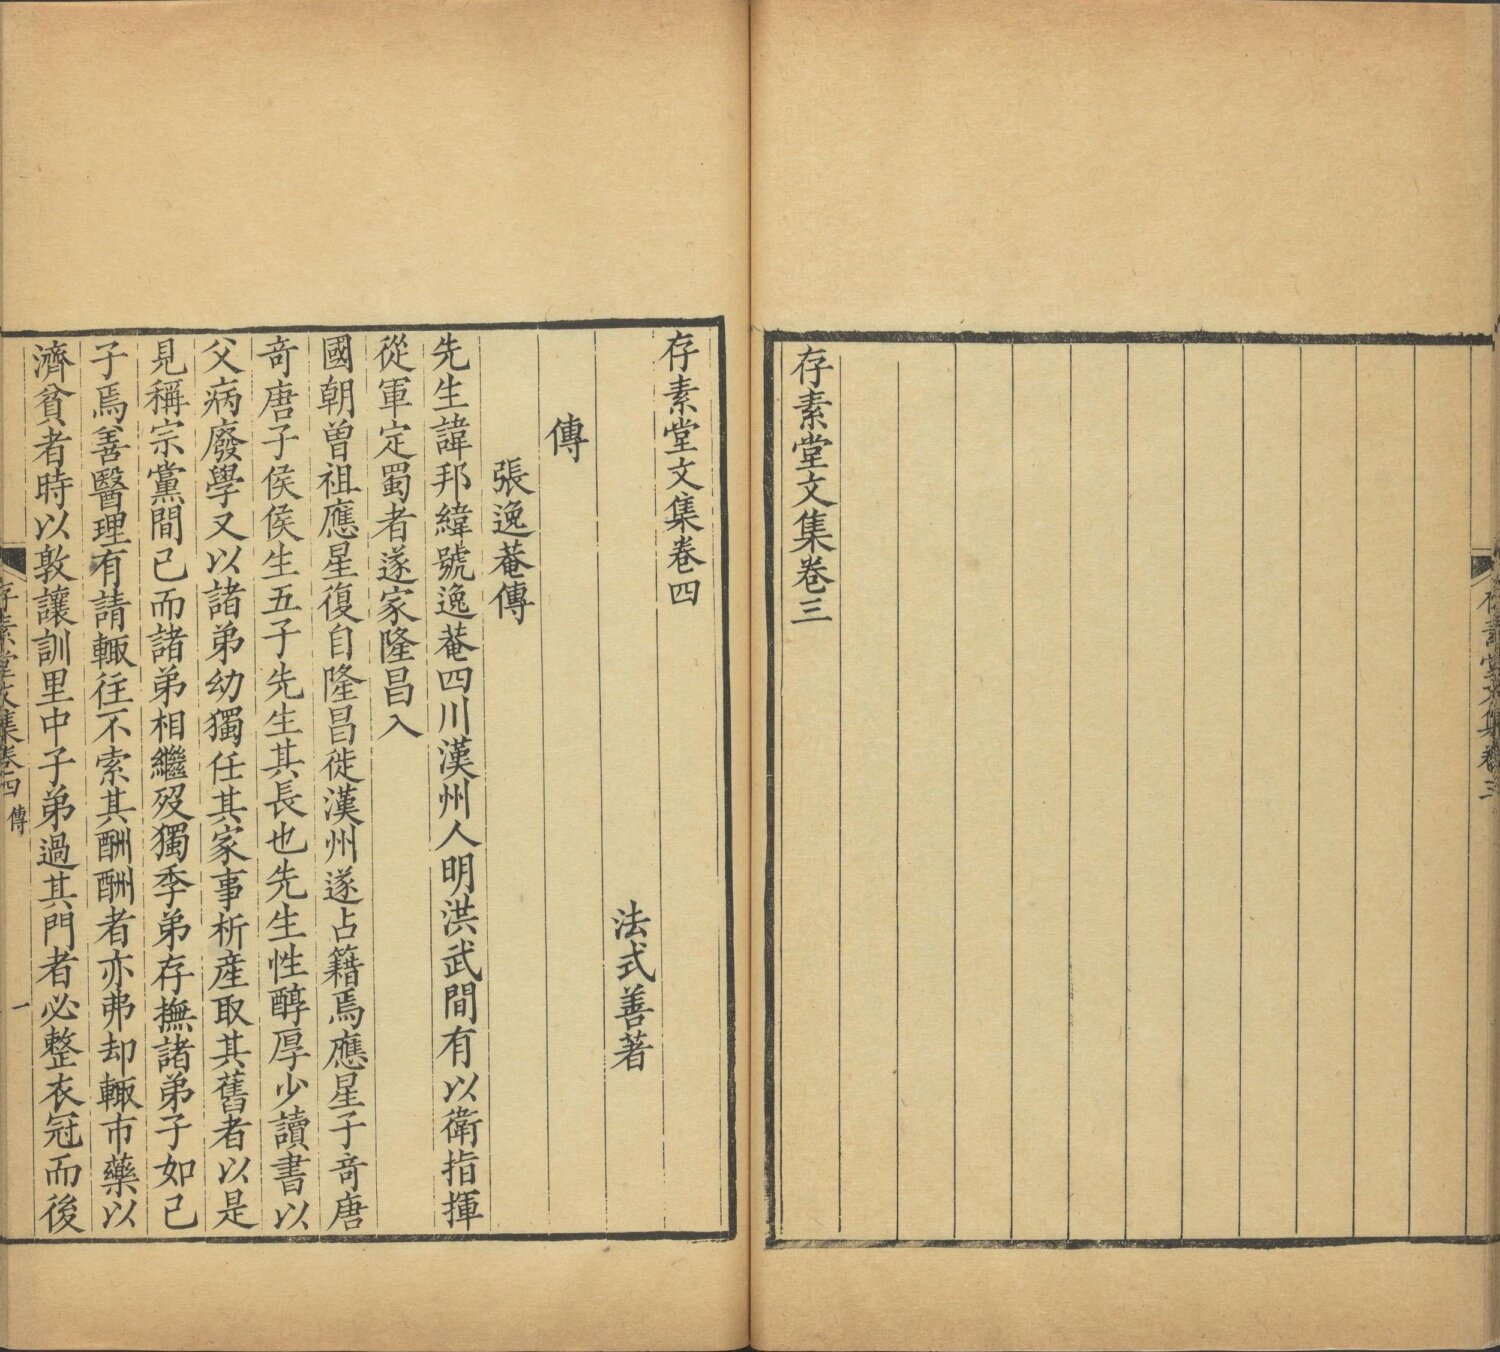 存素堂文集卷三
存素堂文集卷三
存素堂文集卷四
法式善著
傳
張逸菴傳
先生諱邦緯號逸菴四川漢州人明洪武間有以衛指揮
從軍定蜀者遂家隆昌入
國朝曾祖應星復自隆昌徙漢州遂占籍焉應星子奇唐
奇唐子侯侯生五子先生其長也先生性醇厚少讀書以
父病廢學又以諸弟幼獨任其家事析產取其舊者以是
見稱宗黨間已而諸弟相繼歿獨季弟存撫諸弟子如己
子焉善醫理有請輒往不索其酬酬者亦弗却輒市藥以
濟貧者時以敦讓訓里中子弟過其門者必整衣冠而後
存素堂文集卷四 傳 一